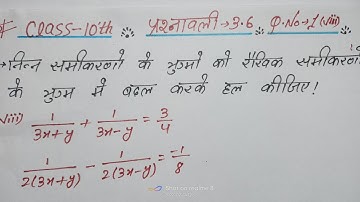 * Class-10th प्रश्नावली → 3.6, Q.No → 1 (viii)
→ निम्न समीकरणों के युग्मों को रैखिक समीकरणों
के युग्म में बदल करके हल कीजिए!
viii) 1/(3x+y) + 1/(3x-y) = 3/4
1/2(3x+y) - 1/2(3x-y) = -1/8